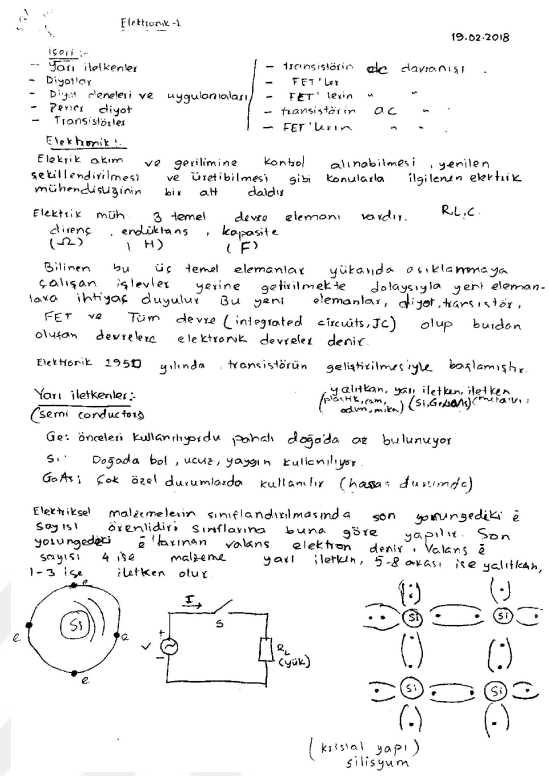 Elektronik-1
19.02.2018
İçeri :-
- Yarı iletkenler
- Diyotlar
- Diyot deneleri ve uygulamaları
- Zener diyot
- Transistörler
- transistörin dc davranışı .
- FET'Ler
- FET'lerin " "
- transistörin ac "
- FET'lerin " " .
Elektronik :
Elekrik akım ve gerilimine kontrol alınabilmesi , yenilen
şekillendirilmesi ve üretibilmesi gibi konularla ilgilenen elektrik
mühendisliğinin bir alt daldır
Elektrik müh. 3 temel devre elemanı vardır. R.L.C.
direnç , endüktans , kapasite
(Ω) ( H) (F)
Bilinen bu üç temel elemanlar yukarıda açıklanmaya
çalışan işlevler yerine getirilmekte dolaysıyla yeni eleman-
lara ihtiyaç duyulur Bu yeni elemanlar, diyot, transistör,
FET ve Tüm devre (integrated circuits, JC) olup burdan
oluşan devrelere elektronik devreler denir.
Elektronik 1950 yılında transistörün geliştirilmesiyle başlamıştır.
Yarı iletkenler:
(semi conductors)
yalıtkan, yarı iletken, iletken
(plastik, cam, odun, mika) (Si, Ge, GaAs)
Ge: önceleri kullanılıyordu pahalı doğa'da az bulunuyor
Si: Doğada bol, ucuz, yaygın kullanılıyor.
GaAs: Çok özel durumlarda kullanılır (hassas durumda)
Elektriksel malzemelerin sınıflandırılmasında son yörüngedeki ē
sayısı örenlidiri sınıflarına buna göre yapılır. Son
yörüngedeki ē'larınan valans elektron denir. Valans ē
sayısı 4 ise malzeme yarı iletkin, 5-8 arası ise yalıtkan,
1-3 ise iletken olur.
e
Si
e
e
e
I
S
+
-
V
RL
(yük)
Si
Si
Si
Si
(kristal yapı)
silisyum